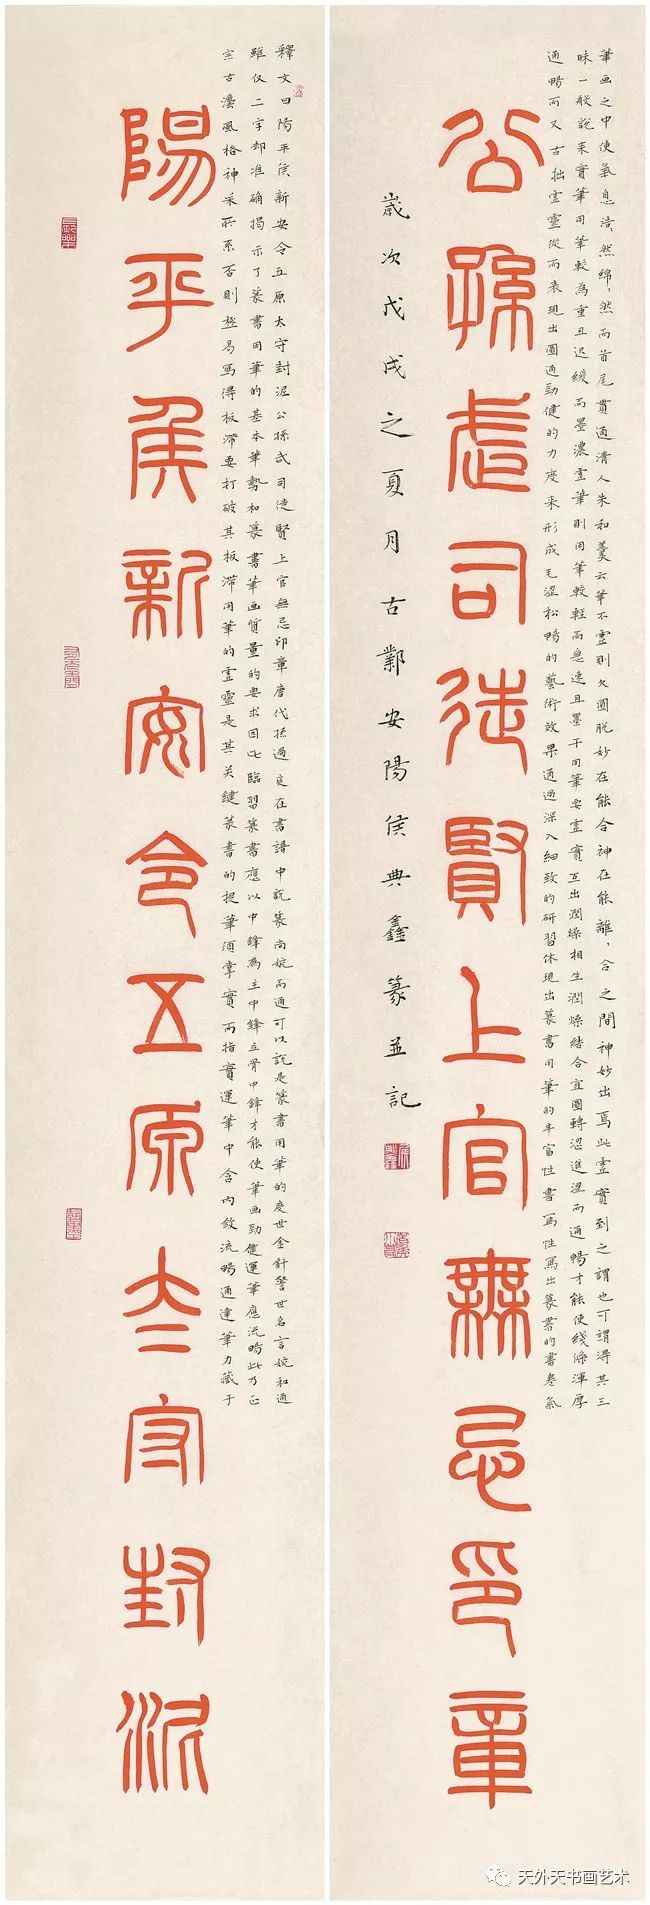 陽平侯新安令五原太守封泥
釋文曰陽平侯新安令五原太守封泥公孫武司徒賢上官無忌印章唐代孫過庭在書譜中說篆尚婉而通可以說是篆書用筆的度世金針警世名言婉和通
雖仅二字却准确揭示了篆書用筆的基本筆勢和篆書筆画質量的要求因此臨習篆書應以中鋒為主中鋒立骨中鋒才能使筆画勁健運筆應流暢此乃正
宗古風格神采所系否則極易寫得板滯要打破其板滯用筆的虛靈是其关鍵篆書的捉筆須掌實而指實運筆中含内斂流暢通達筆力藏于
筆画之中使氣息渾然綿々然而首尾貫通清人朱和羹云筆不虛則欠圓脫妙在能合神在能離々合之間神妙出焉此虛實到之謂也可謂得其三
昧一般說来實筆用筆較為重且迟緩而墨濃虛筆則用筆較輕而急速且墨干用筆要虛實互出潤燥相生潤燥結合宜圓轉澀進澀而通暢才能使綫條渾厚
通暢而又古拙虛靈從而表現出圓通勁健的力度来形成毛澀松暢的藝術效果通過深入細致的研習体現出篆書用筆的丰富性書寫性寫出篆書的書卷氣
公孫武司徒賢上官無忌印章
歲次戊戌之夏月古鄴安陽侯典鑫篆並記
天外天书画艺术